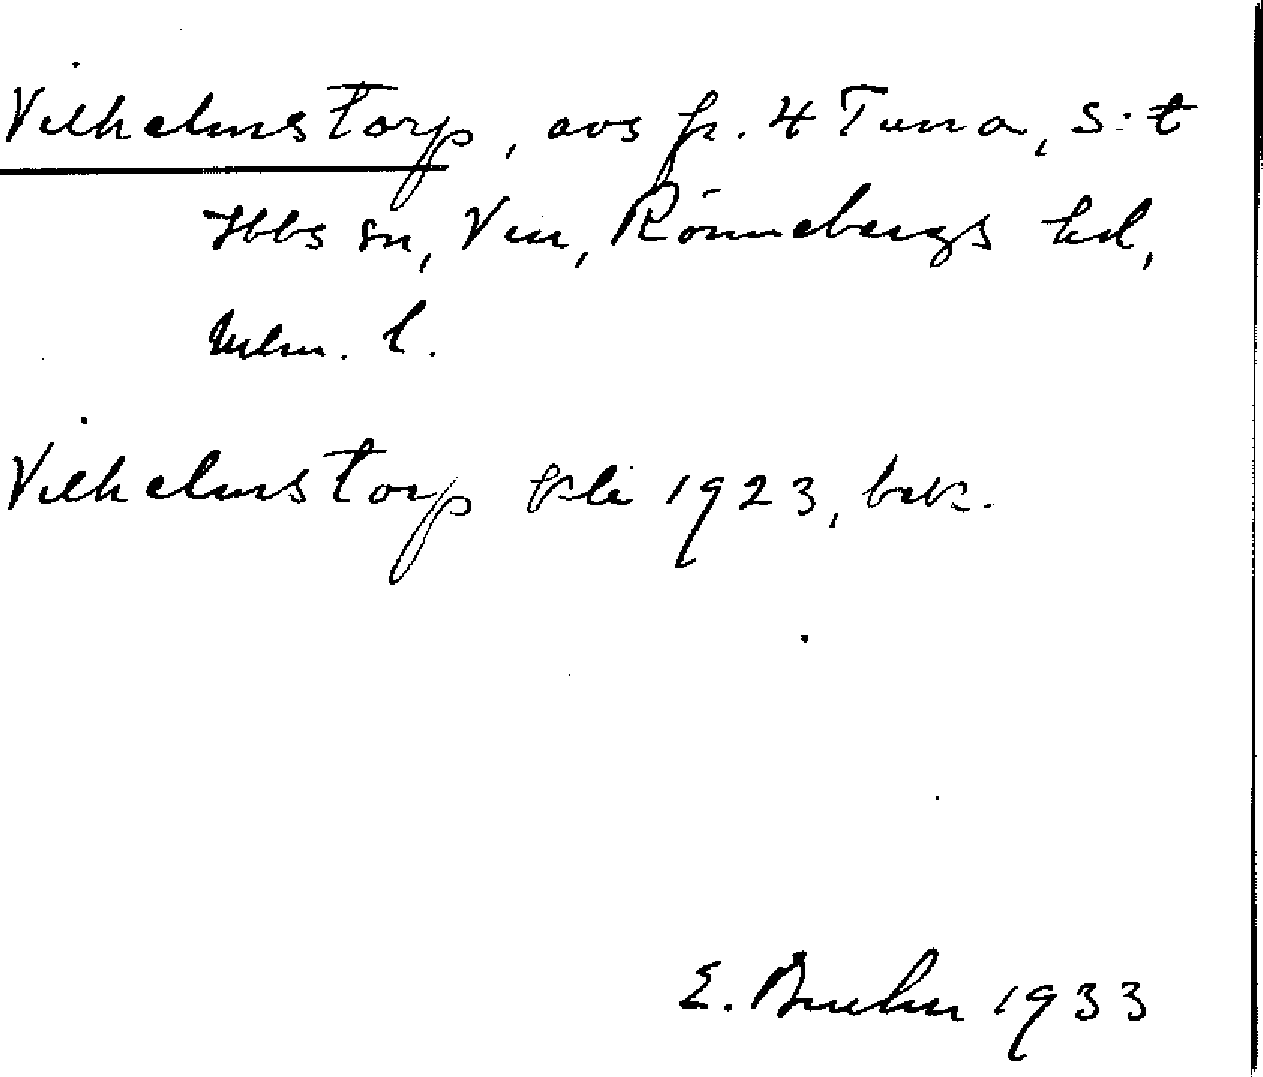 Vilhelmstorp, avs fr. 4 Tuna, S:t
Ibbs sn, Ven, Rönnebergs hd,
Mlm. l.
Vilhelmstorp 1923, bek.
E. 1933